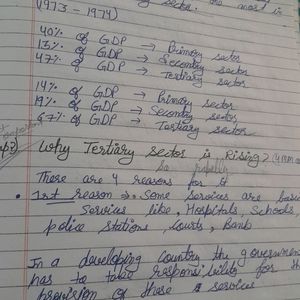 sector. are most in
(1973 - 1974)
40% of GDP → Primary sector
13% of GDP → Secondary sector
47% of GDP → Tertiary sector
14% of GDP → Primary sector
19% of GDP → Secondary sector
67% of GDP → Tertiary sector
Why Tertiary sector is Rising?
So
There are 4 reasons for it
• 1st reason → Some services are basic
Services like, Hospitals, Schools
police stations, Courts, Bank
In a developing country the governmen
has to take responsibility for th
provision of these services